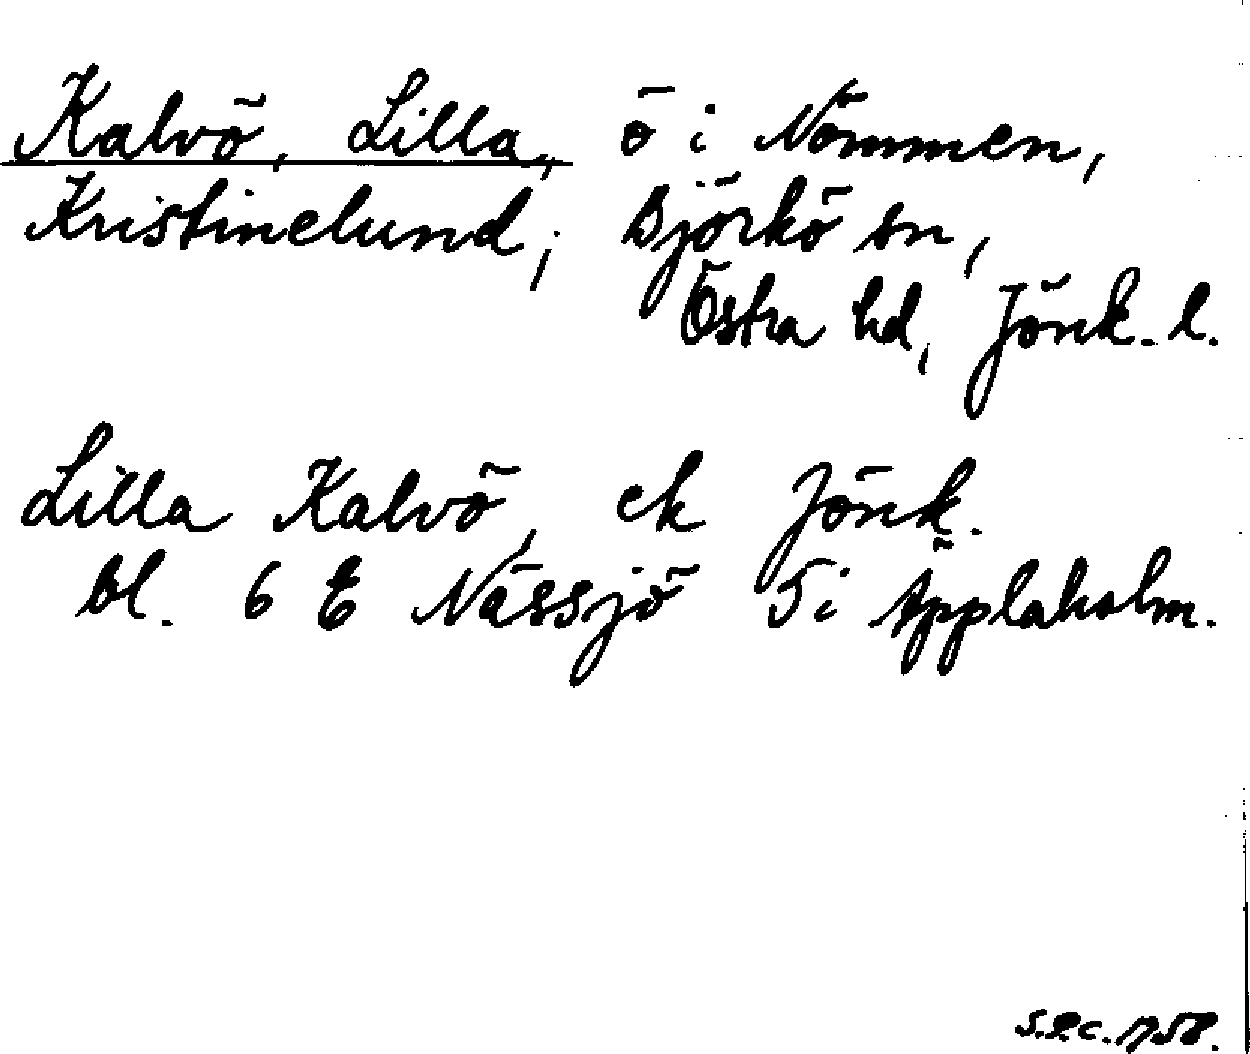 Kalvö, Lilla, ö i Nömmen,
Kristinelund, Björkö sn,
Östra hd, Jönk. l.
Lilla Kalvö, ek Jönk.
bl. 6 E Nässjö 5i Äpplaholm.
1958.